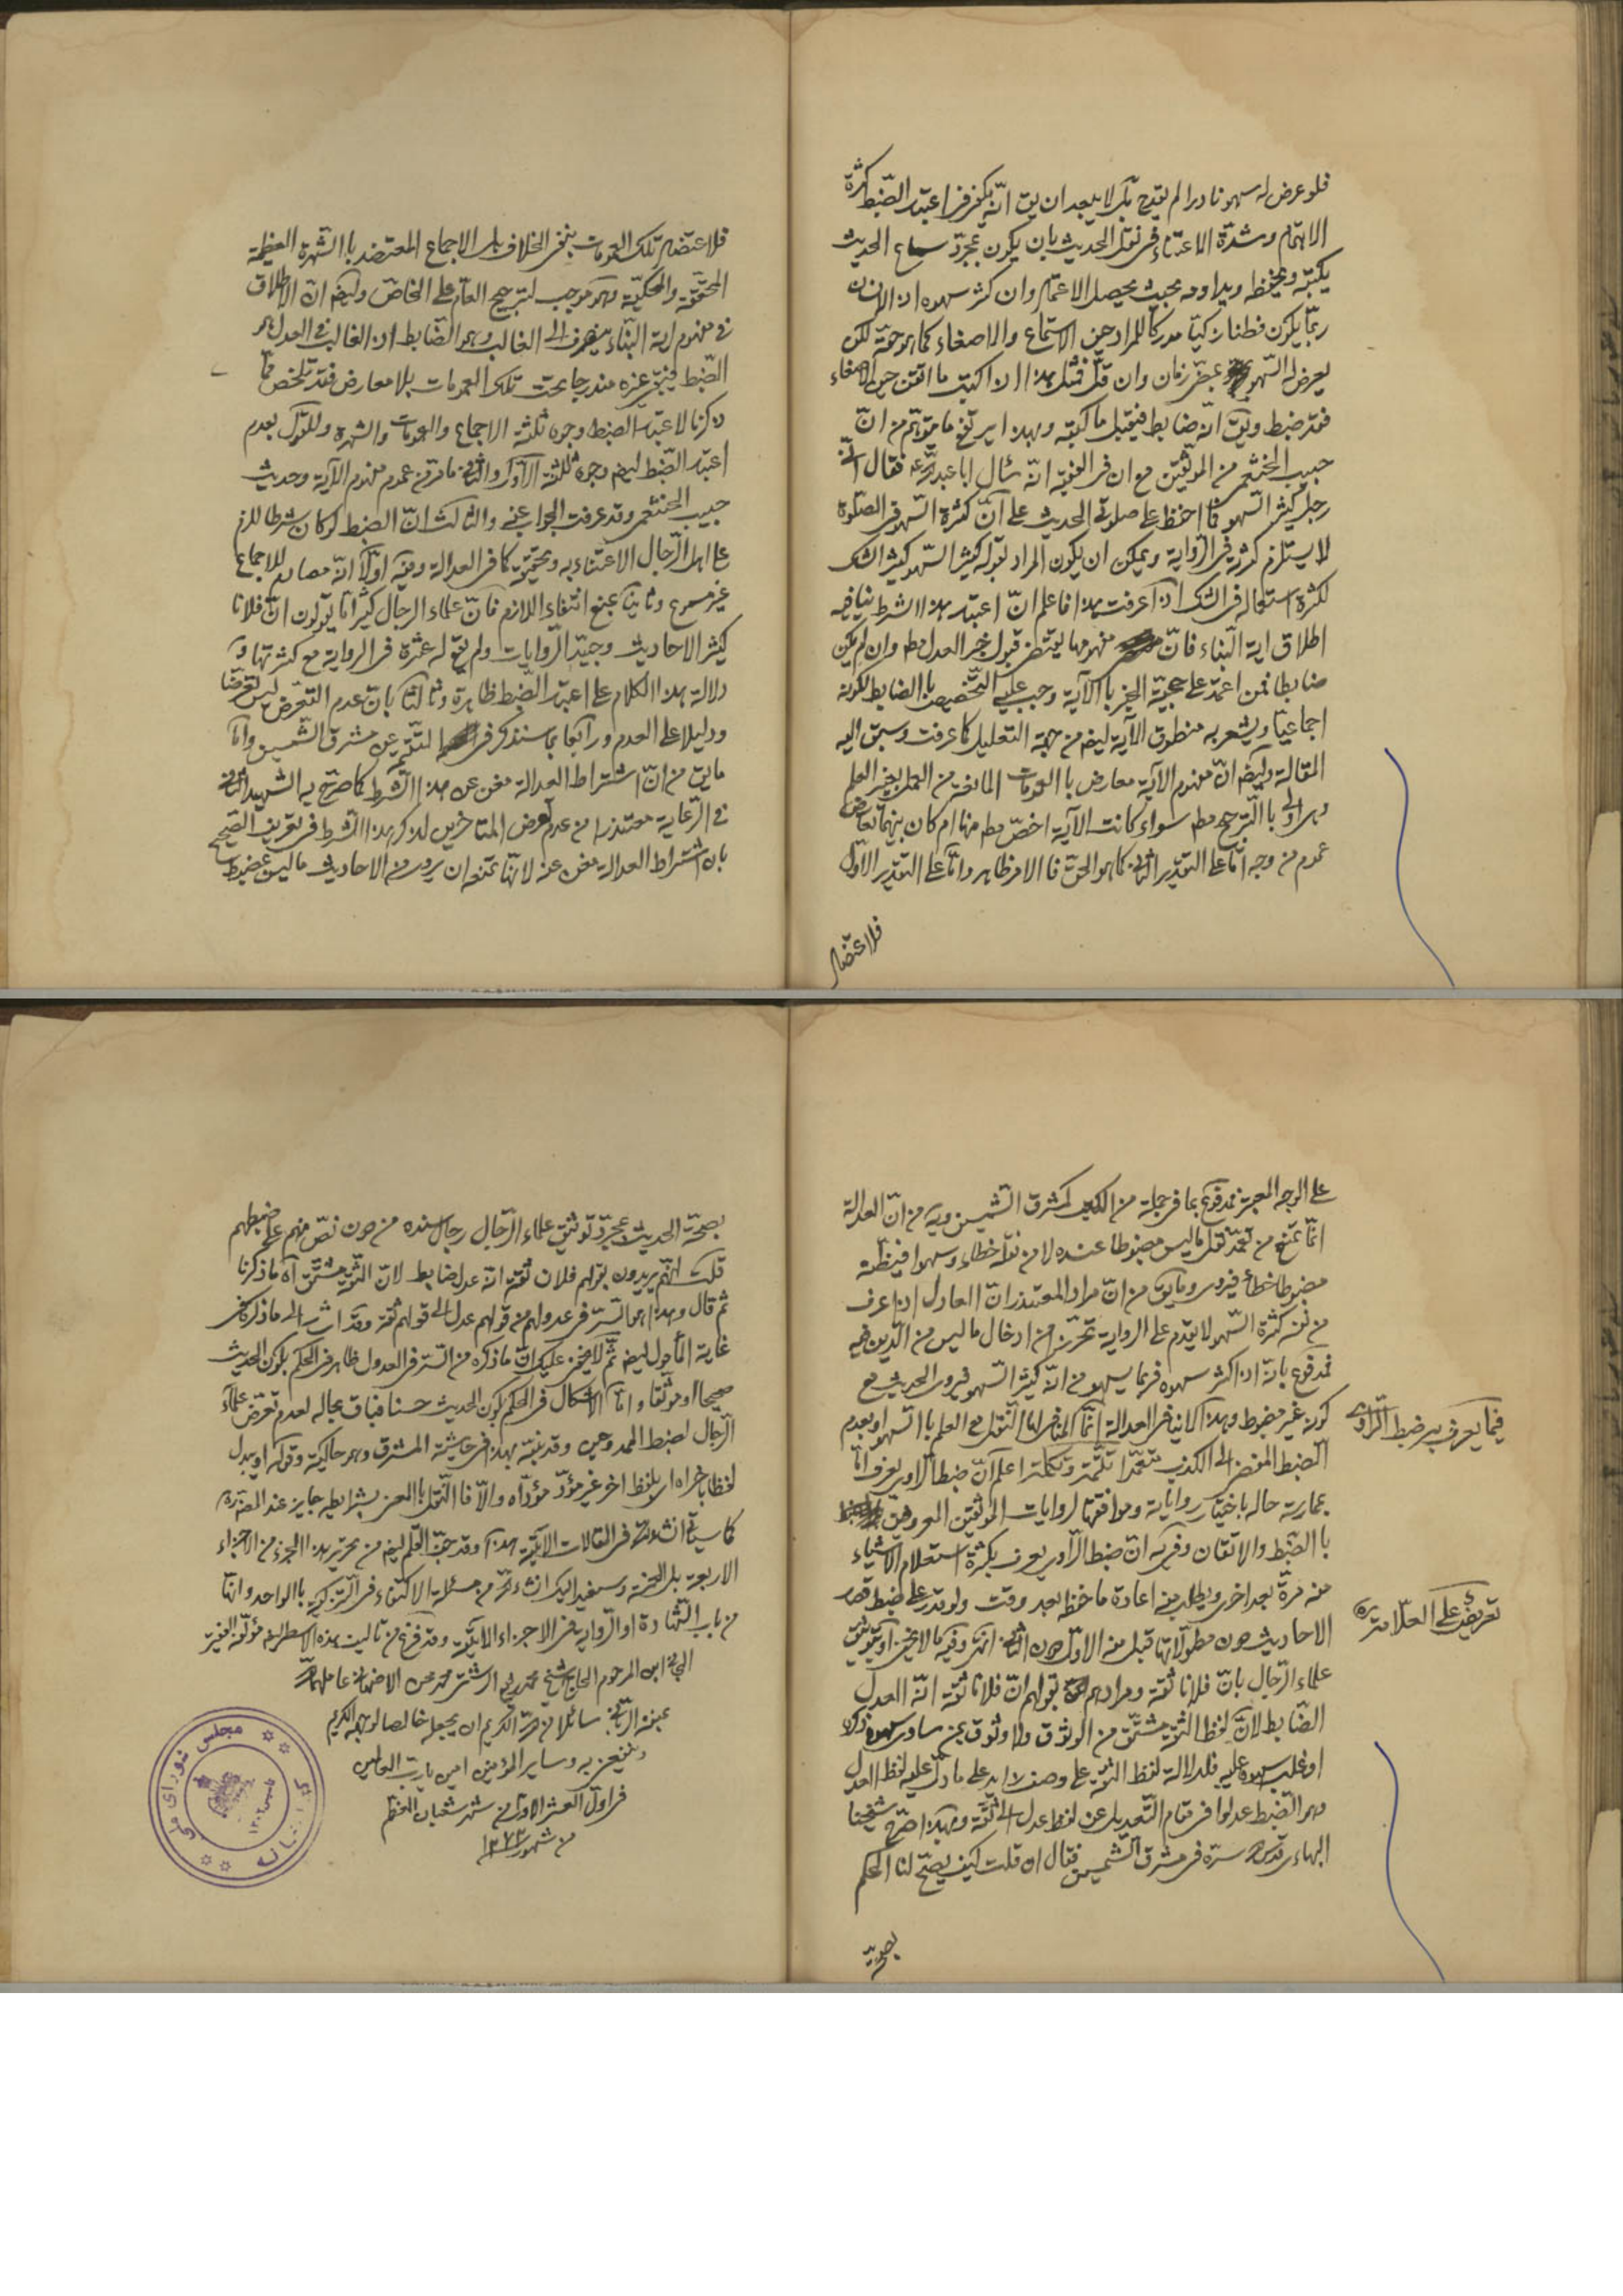 فلو عرض له سهو نادرا لم يقدح بل لا يبعد ان يق انّه يكفى فى اعتبار الضّبط كثرة
الاهتمام وشدّة الاعتناء فى نقل الحديث بان يكون بمجرّد سماع الحديث
يكتبه ويحفظه ويداومه بحيث يحصل الاعتماد وان كثر سهوه اذ الانسان
ربّما يكون فطنا زكيّا مدركا للمراد حين الاستماع والاصغاء كما هو حقّه لكن
يعرض له السّهو بمضىّ زمان وان قلّ فمثل هذا اذا كتب ما اتقن حين الاصغاء
فقد ضبط ويق انّه ضابط فيقبل ما كتبه وبهذا يرتفع ما يتوهّم من انّ
حبيب الخثعمى من الموثّقين مع ان فى الفقيه انّه سئل ابا عبد اللّه ع فقال انّى
رجل كثير السّهو فما احفظ على صلوتى الحديث على انّ كثرة السّهو فى الصّلوة
لا يستلزم كثرته فى الرّواية ويمكن ان يكون المراد بقوله كثير السّهو كثير الشك
لكثرة استعماله فى الشك اذا عرفت هذا فاعلم انّ اعتبار هذا الشرط ينافيه
اطلاق اية النّباء فانّ مفهومها يقتضى قبول خبر العدل مط وان لم يكن
ضابطا فمن اعتمد على حجيّة الخبر بالآية وجب عليه التّخصيص بالضابط لكونه
اجماعيّا ويشعر به منطوق الآية ايضا من جهة التعليل كما عرفت وسبق اليه
المقالة وايضا انّ مفهوم الآية معارض بالعمومات المانعة من العمل بغير العلم
وهى اولى بالتّرجيح مط سواء كانت الآية اخصّ مط منها ام كان بينهما تعارض
عموم من وجه امّا على التقدير الثّانى كما هو الحقّ فالامر ظاهر وامّا على التقدير الاوّل
فلاعتضاد
فلاعتضاد تلك العمومات بنفى الخلاف بل الاجماع المعتضد بالشّهرة العظيمة
المحقّقة والمحكيّة وهو موجب لترجيح العامّ على الخاصّ وايضا انّ الاطلاق
فى مفهوم اية النّباء ينصرف الى الغالب وهو الضّابط اذ الغالب فى العدل هو
الضّبط فيبقى غيره مندرجا تحت تلك العمومات بلا معارض فقد تلخّص ممّا
ذكرنا لاعتبار الضبط وجوه ثلثة الاجماع والعمومات والشهرة وللقول بعدم
اعتبار الضّبط ايضا وجوه ثلثة الاوّل والثّانى ما مرّ من عموم مفهوم الآية وحديث
حبيب الخثعمى وقد عرفت الجواب عنه والثالث انّ الضبط لو كان شرطا للزم
على اهل الرّجال الاعتناء به وتحقيقه كما فى العدالة وفيه اوّلا انّه مصادم للاجماع
غير مسموع وثانيا بمنع انتفاء اللازم فانّ علماء الرجال كثيرا ما يقولون انّ فلانا
كثير الاحاديث وجيّد الرّوايات ولم يقع له عثرة فى الرواية مع كثرتها و
دلالة هذا الكلام على اعتبار الضّبط ظاهرة وثالثا بانّ عدم التعرّض ليس تعرّضا
ودليلا على العدم ورابعا بما سنذكر فى التتميم عن مشرق الشّمسين وامّا
ما يق من انّ اشتراط العدالة مغن عن هذا الشّرط كما صرّح به الشهيد الثّانى
فى الرّعاية معتذرا من عدم تعرض المتأخرين لذكر هذا الشّرط فى تعريف الصّحيح
بان اشتراط العدالة مغن عنه لانّها تمنعه ان يروى من الاحاديث ما ليس بمضبوط
على الوجه المعتبر مدفوع بما فى جملة من الكتب كمشرق الشّمسين وغيره من انّ العدالة
انّما تمنع من تعمّد نقل ما ليس مضبوطا عنده لا من نقله خطاء وسهوا فيظنّه
مضبوطا خطاء فيروى وما يق من انّ مراد المعتذر انّ العادل اذا عرف
من نفسه كثرة السّهو لا يقدم على الرواية تحرّزا من ادخال ما ليس من الدّين فيه
مدفوع بانّه اذا كثر سهوه فربما يسهو من انّه كثير السّهو فيروى الحديث مع
كونه غير مضبوط وهذا لا ينافى العدالة انّما المنافى لها النّقل مع العلم بالسّهو او بعدم
الضبط المفضى الى الكذب متعمّدا تتمّة وتكملة اعلم انّ ضبط الرّاوى يعرف امّا
بممارسة حاله باختبار رواياته وموافقتها لروايات الموثّقين المعروفين
بالضّبط والاتقان وفى يه انّ ضبط الرّاوى يعرف بكثرة استعلام الاشياء
منه مرّة بعد اخرى ويطلب منه اعادة ما حفظه بعد وقت ولو قدر على ضبط قصار
الاحاديث دون مطوّلاتها قبل منه الاوّل دون الثّانى انتهى وفيه ما لا يخفى او بتوثيق
علماء الرّجال بانّ فلانا ثقة ومرادهم بقولهم انّ فلانا ثقة انّه العدل
الضّابط لانّ لفظ الثّقة مشتقّ من الوثوق ولا وثوق بمن ساوى سهوه ذكره
او غلب سهوه عليه فلدلالة لفظ الثّقة على وصف زايد على ما دلّ عليه لفظ العدل
وهو الضّبط عدلوا فى مقام التّعديل عن لفظ عدل الى ثقة وبهذا صرّح شيخنا
البهاء قدّس سرّه فى مشرق الشّمسين فقال ان قلت كيف يصحّ لنا الحكم
بصحّة
فيما يعرف به ضبط الرّاوى
تعريض على العلّامة ره
بصحّة الحديث بمجرّد توثيق علماء الرّجال رجال سنده من دون نصّ منهم على ضبطهم
قلت انّهم يريدون بقولهم فلان ثقة انّه عدل ضابط لانّ الثّقة مشتقّ آه ما ذكرنا
ثم قال وهذا هو السّرّ فى عدولهم من قولهم عدل الى قولهم ثقة وقد اشار الى ما ذكره فى
غاية المأمول ايضا ثمّ لا يخفى عليك انّ ما ذكره من السّرّ فى العدول ظاهر فى الحكم بكون الحديث
صحيحا او موثّقا وامّا الاشكال فى الحكم بكون الحديث حسنا فباق بحاله لعدم تعرّض علماء
الرّجال لضبط الممدوحين وقد نبّه بهذا فى حاشية المشرق وهو حاكية وقوله او يبدل
لفظا باخر اه اى بلفظ اخر غير مؤدّ مؤدّاه والّا فالنّقل بالمعنى بشرايطه جايز عند المصنّف ره
كما سياتى انشاء اللّه فى المقالات الآتية هذا وقد جفّ القلم ايضا من تحرير هذا الجزء من الاجزاء
الاربعة بل الخمسة وسيفيد اليك انشاء اللّه من مسئلة الاكتفاء فى التّزكية بالواحد وانّها
من باب الشّهادة او الرّواية فى الاجزاء الآتية وقد فرغ من تاليف هذه الاسطر مؤلّفه الفقير
ابن المرحوم الحاج شيخ محمد محسن الاصفهانى عاملهما اللّه
سائلا من اللّه الكريم ان يجعل خالصا لوجهه الكريم
وينفعنى به وساير المؤمنين امين يا ربّ العالمين
فى اوّل العشر الاوّل من شهر شعبان المعظّم
من شهور ١٢٧٣
مجلس شورای ملی